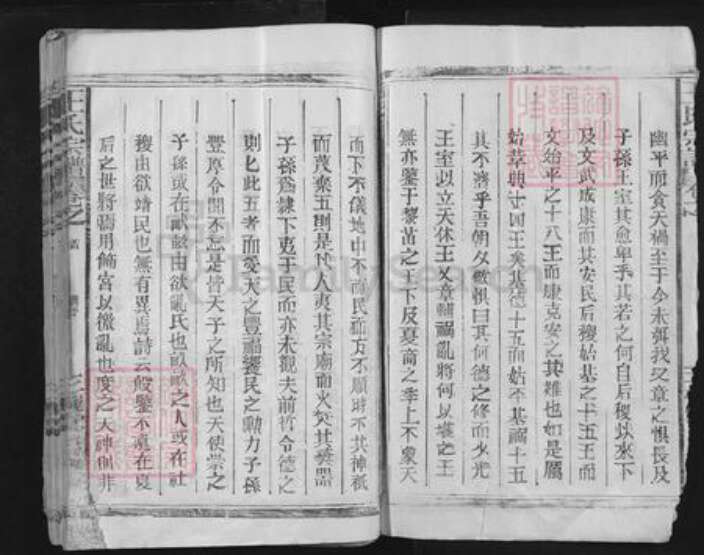 幽平而貪天禍至于今未弭我又章之惧長及
子孫王室其愈卑乎其若之何自后稷以來下
及文武成康而其安民后稷始基之十五王而
文始平之十八王而康克安之其難也如是厲
始革典十四王矣基德十五而始平基禍十五
其不濟乎吾朝夕儆惧曰其何德之修而少光
王室以立天休王又章輔禍亂將何以堪之王
無亦鑒于黎苗之王下及夏商之季上不象天
而下不儀地中不而民而方不順時不共神祇
而蔑棄五則是以人夷其宗廟而火焚其彝器
子孫為隸下夷于民而亦未觀夫前哲令德之
則此五者而愛天之豐福饗民之勳力子孫
豐厚令聞不忘是皆天子之所知也天使崇之
子孫或在畎畝由欲亂民也畎畝之人或在社
稷由欲靖民也無有異焉詩云殷鑒不遠在夏
后之世將焉用飾宮以徼亂也度之天神則非
王氏宗譜卷之
FamilySearch